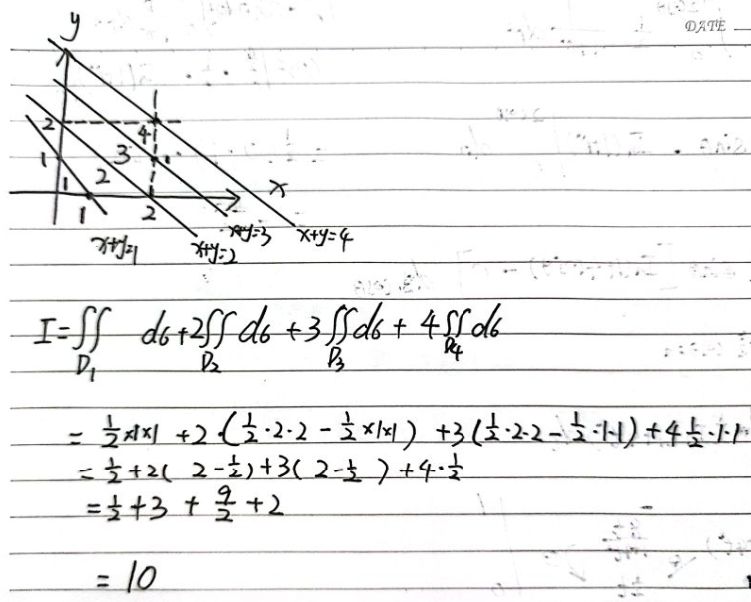 DATE
y
2
4
1
3
1
2
x
1
1
2
x+y=1
x+y=2
x+y=3
x+y=4
I=∬ dσ+2∬dσ+3∬dσ+4∬dσ
D₁ D₂ D₃ D₄
=½×1×1+2·(½·2·2-½×1×1)+3(½·2·2-½·1·1)+4½·1·1
=½+2(2-½)+3(2-½)+4·½
=½+3+9/2+2
=10